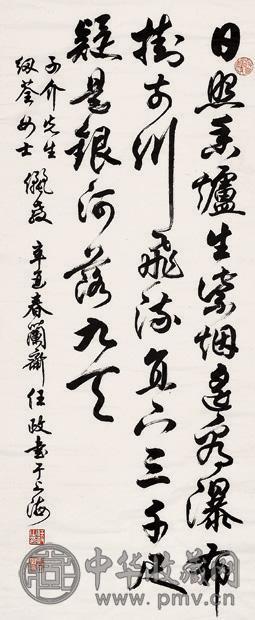 日照香爐生紫烟遥看瀑布
掛前川飛流直下三千尺
疑是銀河落九天
子介先生
紉荃女士
儷教 辛 春蘭齋任政書于上海
中华收藏网
www.pmv.cn